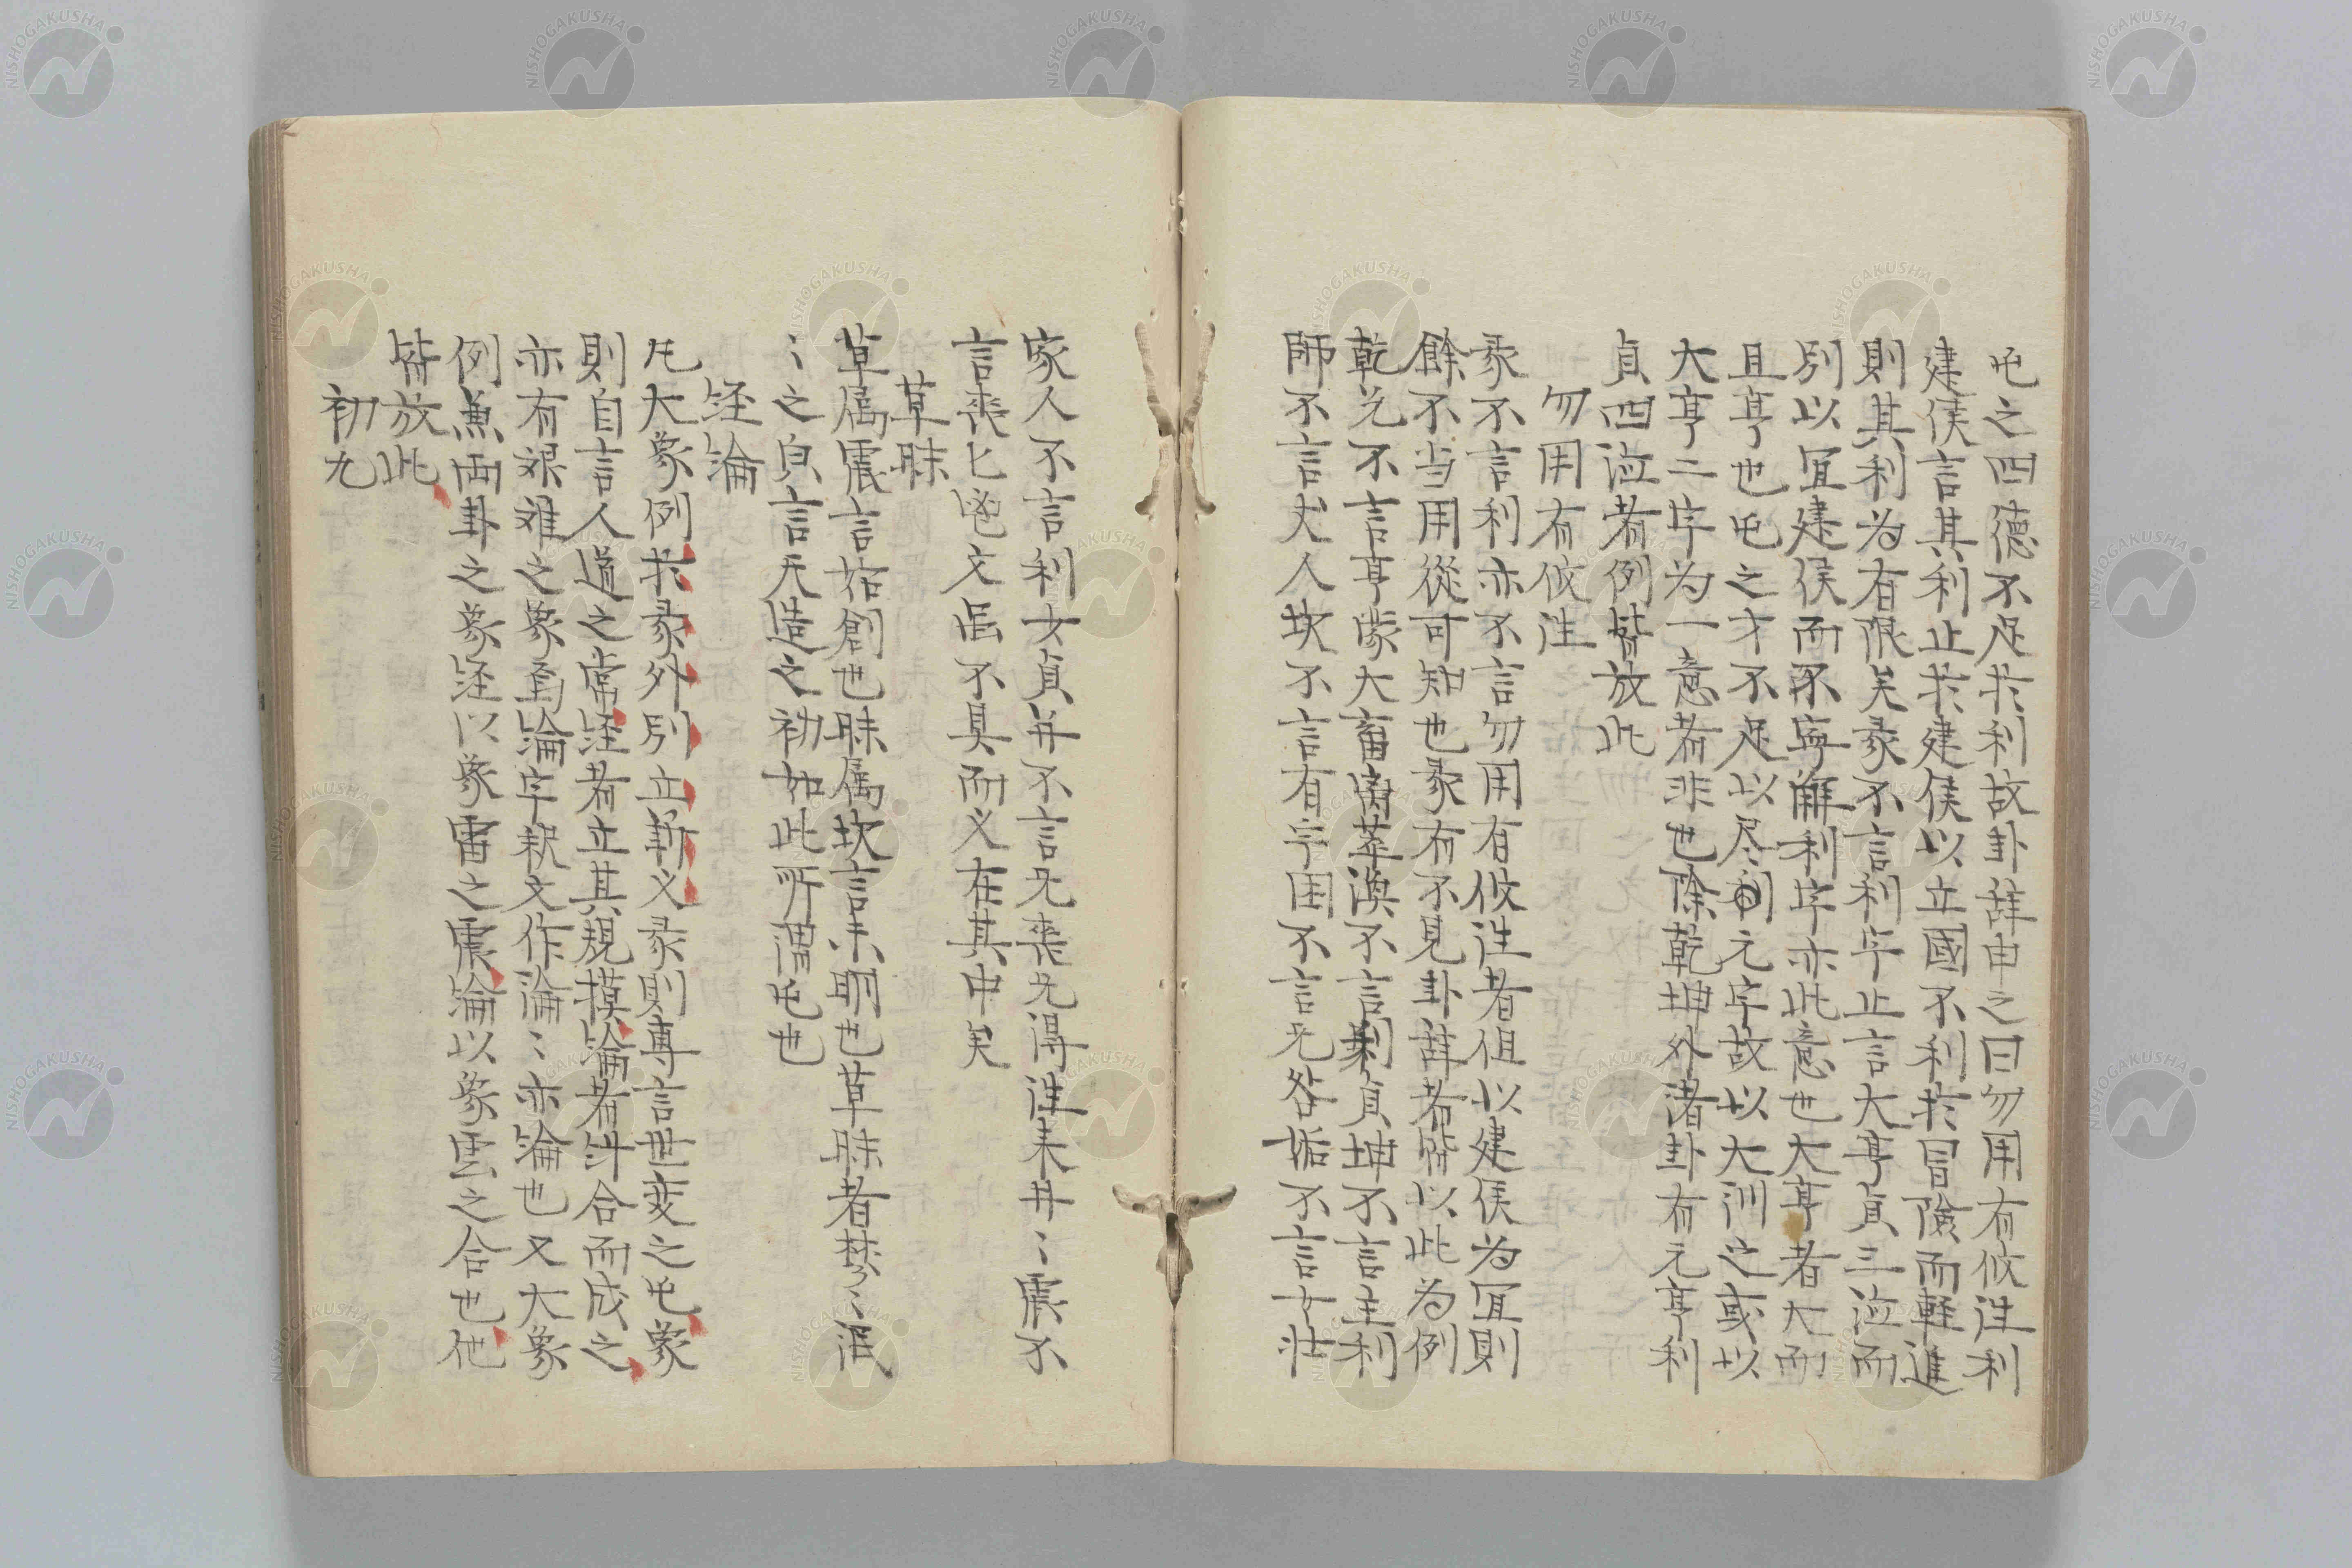 屯之四德不足於利故卦辞申之曰勿用有攸往利
建侯言其利止於建侯以立國不利於冒險而軽進
則其利为有限矣彖不言利字止言大亨貞三泣而
別以冝建侯而不寧觧利字亦此意也大亨者大而
且亨也屯之才不足以尽元字故以大訓之或以
大亨二字为一意者非也除乾坤外諸卦有元亨利
貞四泣者例皆放此
勿用有攸往
彖不言利亦不言勿用有攸往者但以建侯为冝則
餘不当用從可知也彖有不見卦辞者皆以此为例
乾兑不言亨蒙大畜离萃渙不言利貞坤不言主利
師不言丈人坎不言有孚困不言无咎姤不言女壮
家人不言利女貞井不言无喪无得往来井〻震不
言喪匕鬯文虽不具而义在其中矣
草昧
草属震言始創也昧属坎言未明也草昧者棼〻泯
〻之貞言天造之初如此所謂屯也
経綸
凡大象例於彖外別立新义彖則專言世変之屯象
則自言人道之常経者立其規模綸者斜合而成之
亦有艰难之象焉綸字釈文作論〻亦綸也又大象
例兼両卦之象経以象雷之震綸以象雲之合也他
皆放此
初九